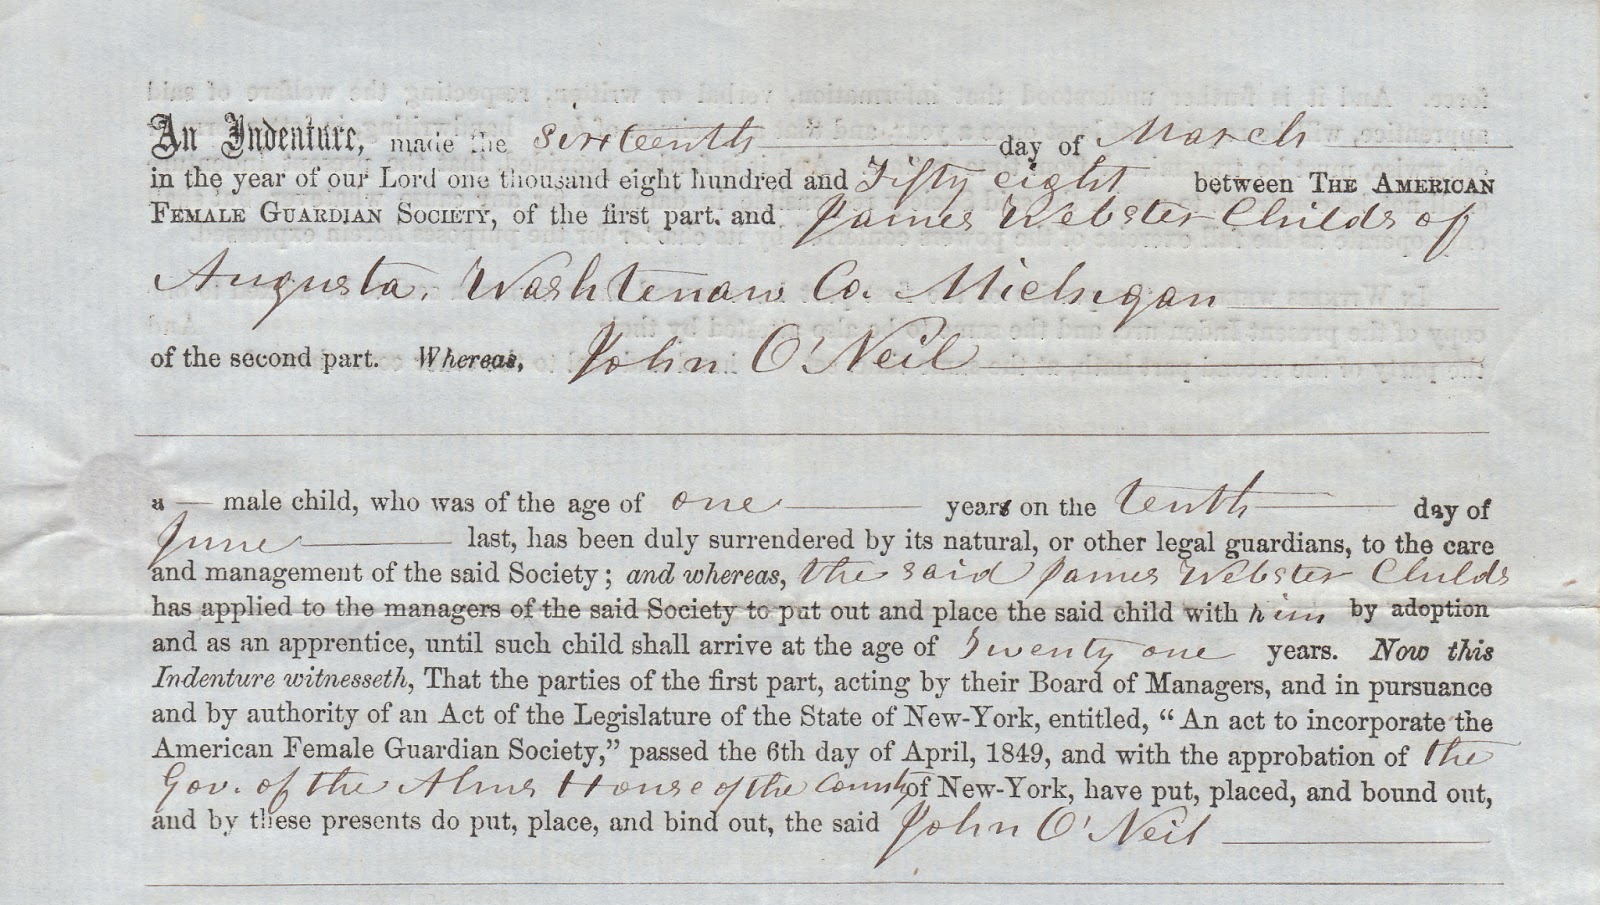 An Indenture, made the sixteenth day of March
in the year of our Lord one thousand eight hundred and Fifty eight between THE AMERICAN
FEMALE GUARDIAN SOCIETY, of the first part. and James Webster Childs of
Augusta, Washtenaw Co. Michigan
of the second part. Whereas, John O'Neil
a male child, who was of the age of one years on the tenth day of
June last, has been duly surrendered by its natural, or other legal guardians, to the care
and management of the said Society; and whereas, the said James Webster Childs
has applied to the managers of the said Society to put out and place the said child with him by adoption
and as an apprentice, until such child shall arrive at the age of Twenty one years. Now this
Indenture witnesseth, That the parties of the first part, acting by their Board of Managers, and in pursuance
and by authority of an Act of the Legislature of the State of New-York, entitled, “An act to incorporate the
American Female Guardian Society,” passed the 6th day of April, 1849, and with the approbation of the
Gov. of the Alms House of the County of New-York, have put, placed, and bound out,
and by these presents do put, place, and bind out, the said John O'Neil